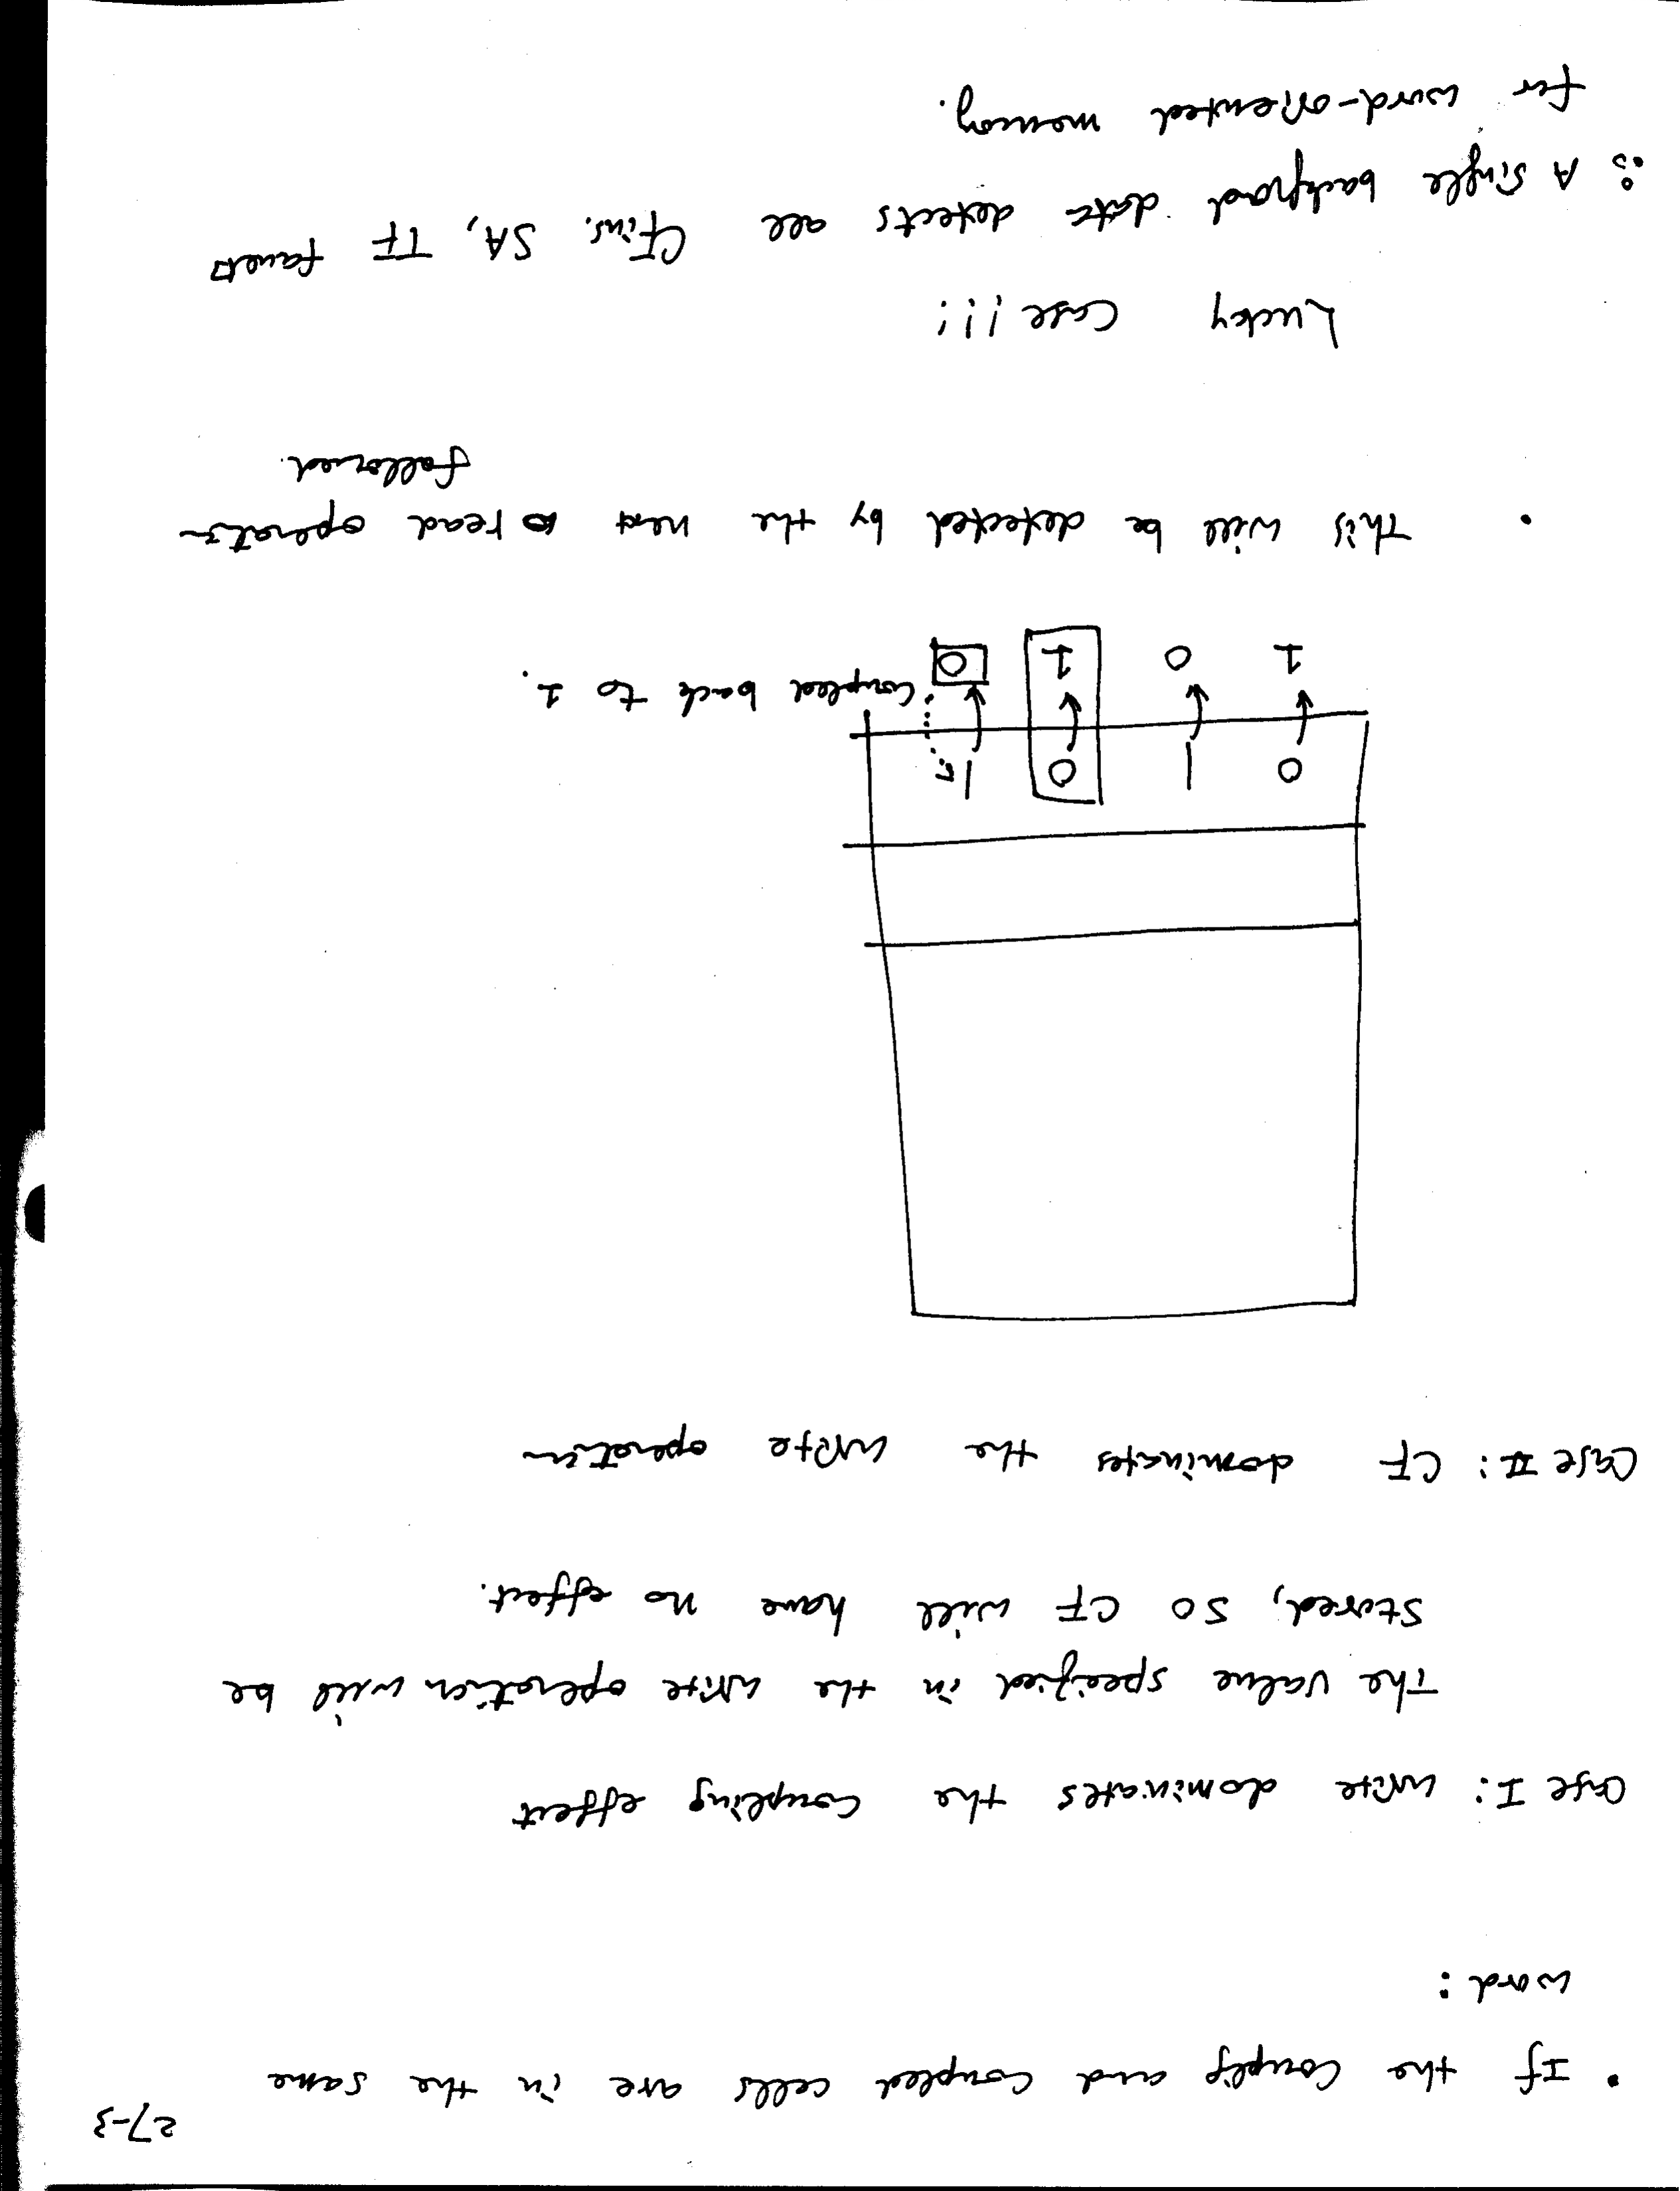 27-3
• If the coupling and coupled cells are in the same
word :
Case I: write dominates the coupling effect
The value specified in the write operation will be
stored, so CF will have no effect.
Case II: CF dominates the write operation
0 1 0 1
1 0 1 0 Coupled back to 1.
• This will be detected by the next read operation
followed.
Lucky Case !!!
∴ A single backgrod data detects all CFins, SA, TF faults
for word-oriented memory.